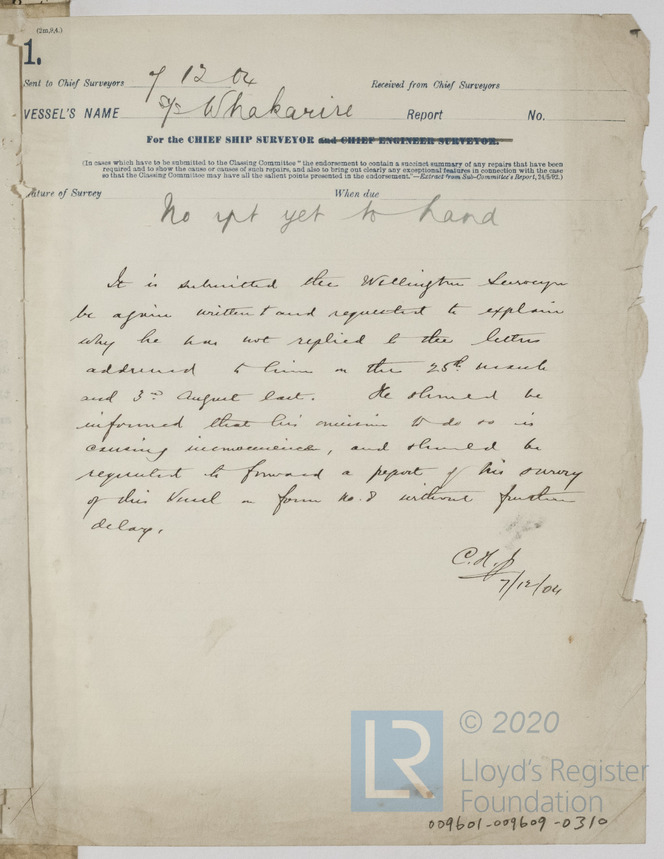 (2m,9,4.)
1.
Sent to Chief Surveyors 7 12 04 Received from Chief Surveyors
VESSEL'S NAME Whakarire Report No.
For the CHIEF SHIP SURVEYOR and CHIEF ENGINEER SURVEYOR.
(In cases which have to be submitted to the Classing Committee "the endorsement to contain a succinct summary of any repairs that have been
required and to show the cause or causes of such repairs, and also to bring out clearly any exceptional features in connection with the case
so that the Classing Committee may have all the salient points presented in the endorsement."—Extract from Sub-Committee's Report, 24/5/92.)
ature of Survey When due
No rpt yet to hand
It is submitted the Wellington Surveyor
be again written to and requested to explain
why he has not replied to the letters
addressed to him on the 25th March
and 3rd August last. He should be
informed that his omission to do so is
causing inconvenience, and should be
requested to forward a report of his survey
of this Vessel on form No. 8 without further
delay.
C.H.J.
7/12/04
LR © 2020
Lloyd's Register
Foundation
009601-009609-0310